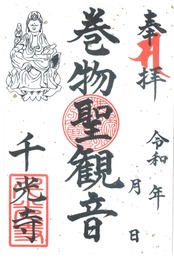 奉拝
令和 年
月 日
巻物聖観音
千光寺